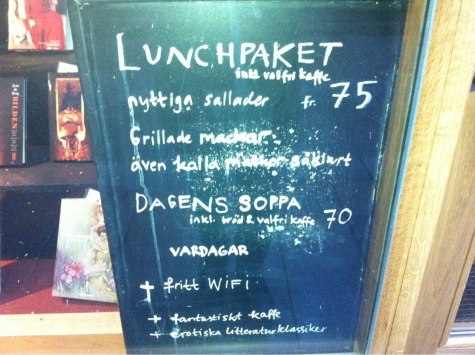 LUNCHPAKET
inkl valfri kaffe
nyttiga sallader fr. 75
Grillade mackor
även kalla mackor såklart
DAGENS SOPPA
inkl. bröd & valfri kaffe 70
VARDAGAR
+ fritt WiFi
+ fantastiskt kaffe
+ erotiska litteraturklassiker
BILDEN